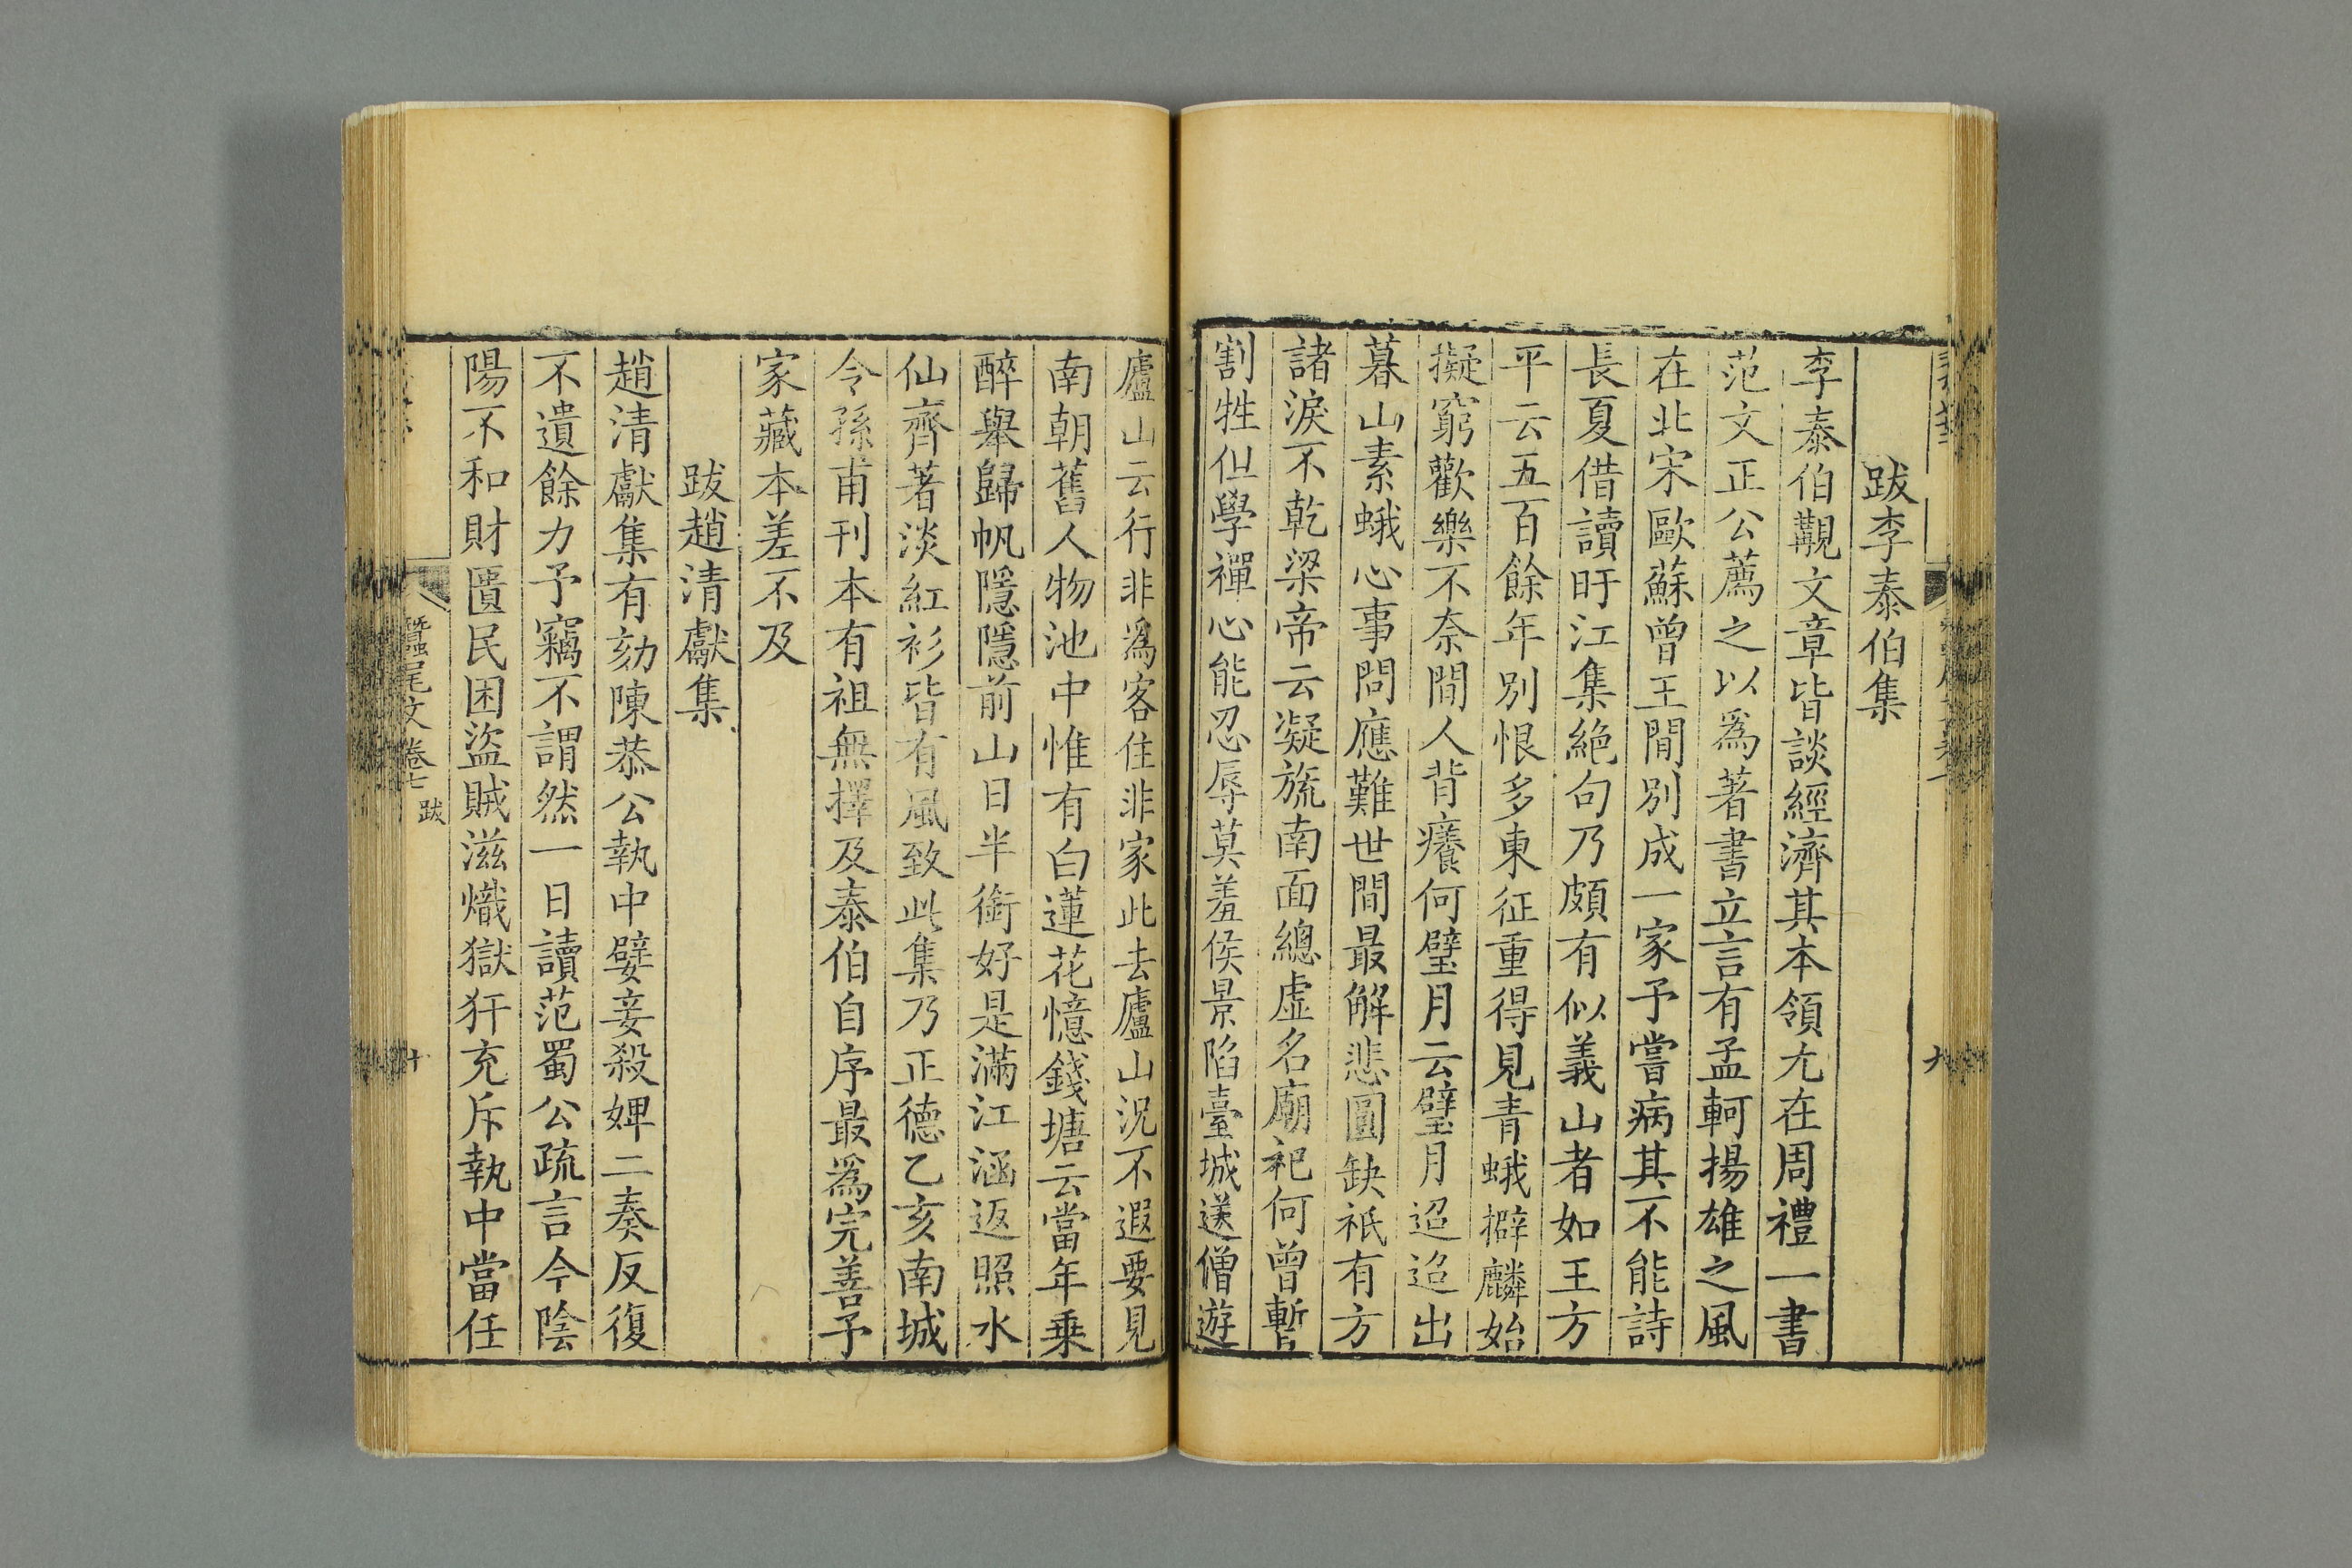 跋李泰伯集
李泰伯覯文章皆談經濟其本領尤在周禮一書
范文正公薦之以爲著書立言有孟軻揚雄之風
在北宋歐蘇曾王間別成一家予嘗病其不能詩
長夏借讀旴江集絶句乃頗有似義山者如王方
平云五百餘年別恨多東征重得見青蛾擗麟始
擬窮歡樂不奈閒人背癢何璧月云璧月迢迢出
暮山素蛾心事問應難世間最解悲圓缺祇有方
諸淚不乾梁帝云凝旒南面總虛名廟祀何曾暫
割牲但學禪心能忍辱莫羞侯景陷臺城送僧遊
廬山云行非爲客住非家此去廬山况不遐要見
南朝舊人物池中惟有白蓮花憶錢塘云當年乗
醉舉歸帆隱隱前山日半銜好是滿江涵返照水
仙齊著淡紅衫皆有風致此集乃正德乙亥南城
令孫甫刊本有祖無擇及泰伯自序最爲完善予
家藏本差不及
跋趙清獻集
趙清獻集有劾陳恭公執中嬖妾殺婢二奏反復
不遺餘力予竊不謂然一日讀范蜀公疏言今陰
陽不和財匱民困盜賊滋熾獄犴充斥執中當任
蠶尾文卷七 跋 十
九